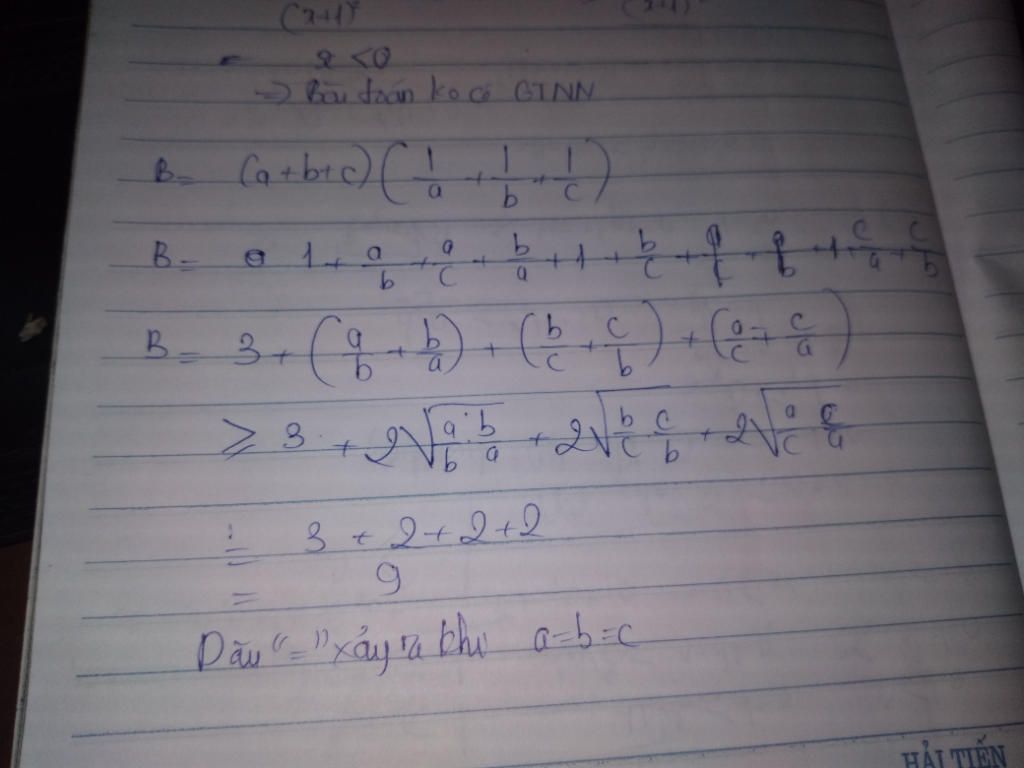 (x+1)² (x+1)
= 2 < 0
=> Bài toán ko có GTNN
B = (a+b+c)(1/a + 1/b + 1/c)
B = 1 + a/b + a/c + b/a + 1 + b/c + 1 + c/a + c/b
B = 3 + (a/b + b/a) + (b/c + c/b) + (a/c + c/a)
≥ 3 + 2√(a/b · b/a) + 2√(b/c · c/b) + 2√(a/c · c/a)
= 3 + 2 + 2 + 2
= 9
Dấu "=" xảy ra khi a=b=c
HẢI TIẾN